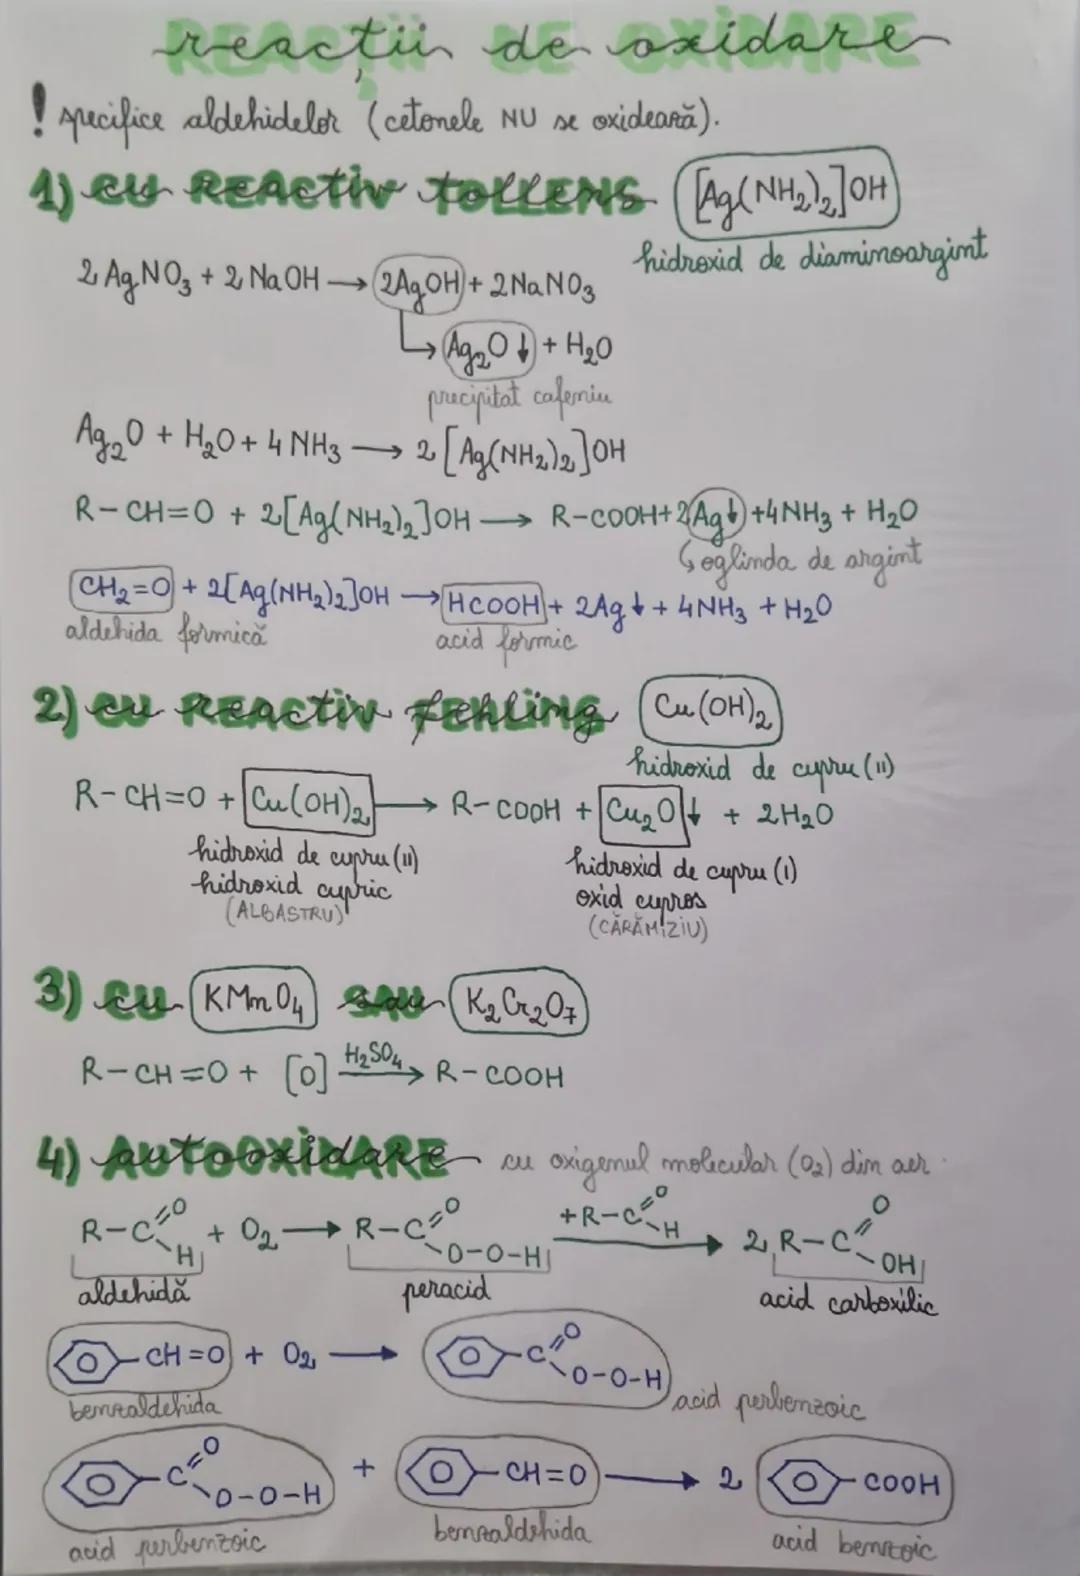 reacții de oxidare
! specifice aldehidelor (cetonele NU se oxidează).
1) cu REACTIV tOLLENS [Ag(NH₂)₂]OH
hidroxid de diaminoargint
2 AgNO₃ + 2 NaOH → 2AgOH + 2NaNO₃
↳ Ag₂O↓ + H₂O
precipitat cafeniu
Ag₂O + H₂O + 4 NH₃ → 2 [Ag(NH₂)₂]OH
R-CH=O + 2[Ag(NH₂)₂]OH → R-COOH + 2Ag↓ + 4NH₃ + H₂O
↳ oglinda de argint
CH₂=O + 2[Ag(NH₂)₂]OH → HCOOH + 2Ag↓ + 4NH₃ + H₂O
aldehida formică acid formic
2) cu REACTIV fEhling Cu(OH)₂
hidroxid de cupru (II)
R-CH=O + Cu(OH)₂ → R-COOH + Cu₂O↓ + 2H₂O
hidroxid de cupru (II) hidroxid de cupru (I)
hidroxid cupric oxid cupros
(ALBASTRU) (CĂRĂMIZIU)
3) cu KMnO₄ SAU K₂Cr₂O₇
R-CH=O + [O] H₂SO₄→ R-COOH
4) AUTOOXIDARE cu oxigenul molecular (O₂) din aer.
R-C=O-H + O₂ → R-C=O-O-O-H +R-C=O-H → 2 R-C=O-OH
aldehidă peracid acid carboxilic
-CH=O + O₂ → -C=O-O-O-H
benzaldehida acid perbenzoic
-C=O-O-O-H + -CH=O → 2 -COOH
acid perbenzoic benzaldehida acid benzoic